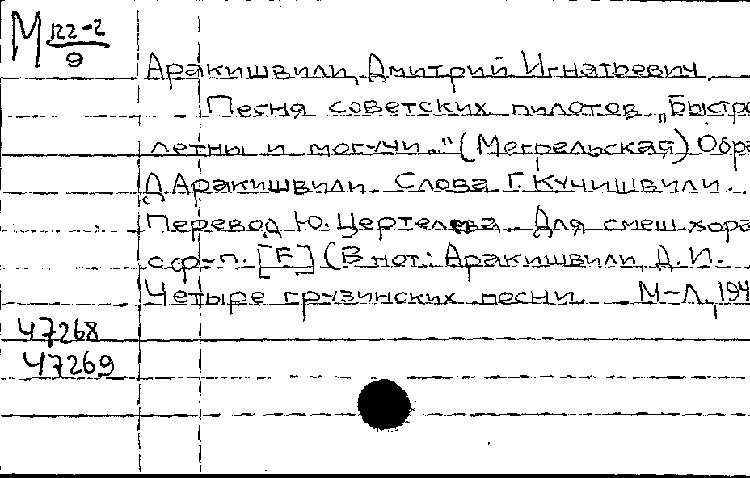 М 122-2
9
Аракишвили, Дмитрий Игнатьевич
Песня советских пилотов „Быстро
летны и могучи..." (Мегрельская) Обра
Д Аракишвили. Слова Г. Кучишвили.
Перевод Ю. Цертелева. Для смеш. хора
с ф-п. [F] (В нот.: Аракишвили, Д. И.
Четыре грузинских песни. М-Л, 194
47268
47269